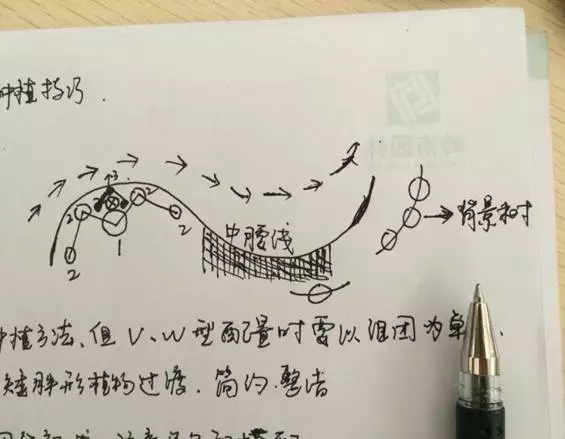 种植技巧.
3
2 2 2
1 2
2
中腰线
背景树
种植方法、但V、W型配置时需以组团为单
矮胖形植物过渡.简约.整洁